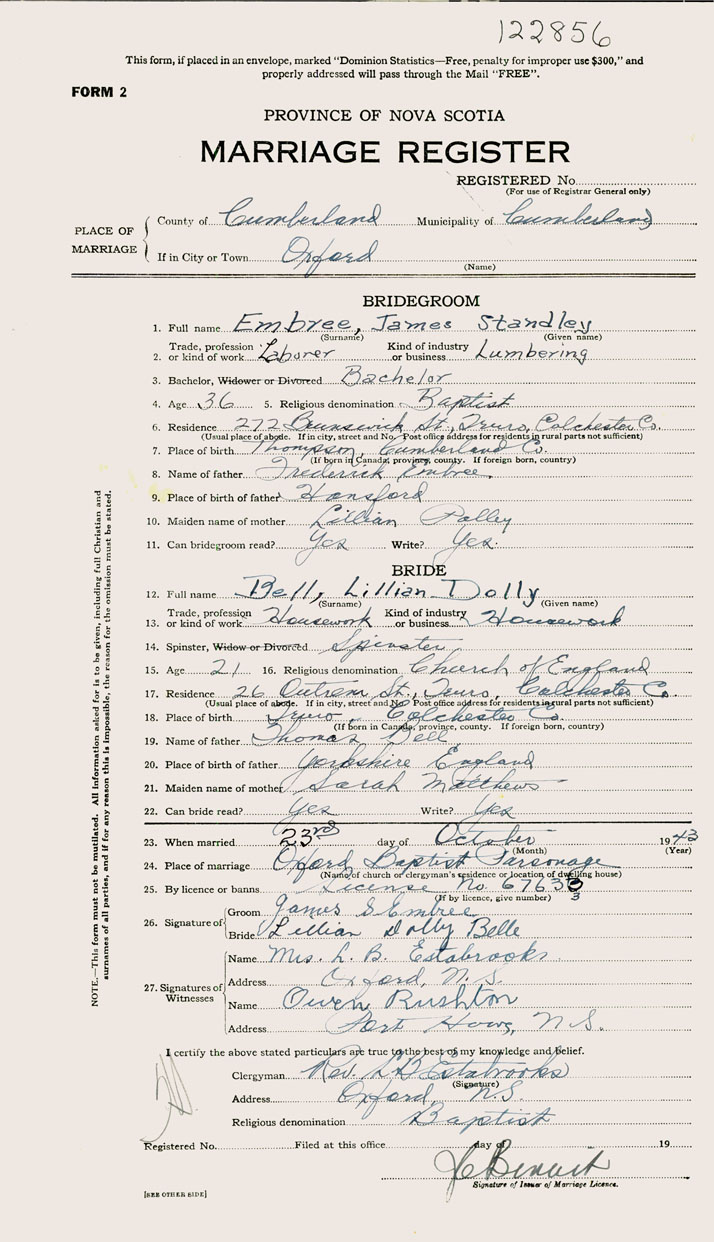 122856
This form, if placed in an envelope, marked "Dominion Statistics—Free, penalty for improper use $300," and
properly addressed will pass through the Mail "FREE".
FORM 2
PROVINCE OF NOVA SCOTIA
MARRIAGE REGISTER
REGISTERED No.
(For use of Registrar General only)
PLACE OF MARRIAGE
County of Cumberland Municipality of Cumberland
If in City or Town Oxford
(Name)
BRIDEGROOM
1. Full name Embree, James Standley
(Surname) (Given name)
2. Trade, profession or kind of work Laborer Kind of industry or business Lumbering
3. Bachelor, Widower or Divorced Bachelor
4. Age 36 5. Religious denomination Baptist
6. Residence 272 Brunswick St., Truro, Colchester Co.
(Usual place of abode. If in city, street and No. Post office address for residents in rural parts not sufficient)
7. Place of birth Thompson, Cumberland Co.
(If born in Canada, province, county. If foreign born, country)
8. Name of father Frederick Embree
9. Place of birth of father Hansford
10. Maiden name of mother Lillian Polley
11. Can bridegroom read? Yes Write? Yes.
BRIDE
12. Full name Bell, Lillian Dolly
(Surname) (Given name)
13. Trade, profession or kind of work Housework Kind of industry or business Housework
14. Spinster, Widow or Divorced Spinster
15. Age 21 16. Religious denomination Church of England
17. Residence 26 Outram St., Truro, Colchester Co.
(Usual place of abode. If in city, street and No. Post office address for residents in rural parts not sufficient)
18. Place of birth Truro, Colchester Co.
(If born in Canada, province, county. If foreign born, country)
19. Name of father Thomas Bell
20. Place of birth of father Yorkshire England
21. Maiden name of mother Sarah Matthews
22. Can bride read? Yes Write? Yes
23. When married 23rd day of October 1943
(Month) (Year)
24. Place of marriage Oxford Baptist Parsonage
(Name of church or clergyman's residence or location of dwelling house)
25. By licence or banns License No. 6763
(If by licence, give number) 3
26. Signature of
Groom James S Embree
Bride Lillian Dolly Belle
27. Signatures of Witnesses
Name Mrs. L. B. Estabrooks
Address Oxford, N.S.
Name Owen Rushton
Address Port Howe, N.S.
I certify the above stated particulars are true to the best of my knowledge and belief.
Clergyman Rev. L B Estabrooks
(Signature)
Address Oxford, N.S.
Religious denomination Baptist
Registered No. Filed at this office day of 19
Signature of Issuer of Marriage Licence.
[SEE OTHER SIDE]
NOTE.—This form must not be mutilated. All information asked for is to be given, including full Christian and
surnames of all parties, and if for any reason this is impossible, the reason for the omission must be stated.